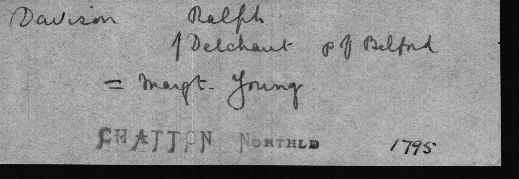 Davison Ralph
f Delchant p of Belford
= Margt. Young
CHATTON NORTHLD 1795